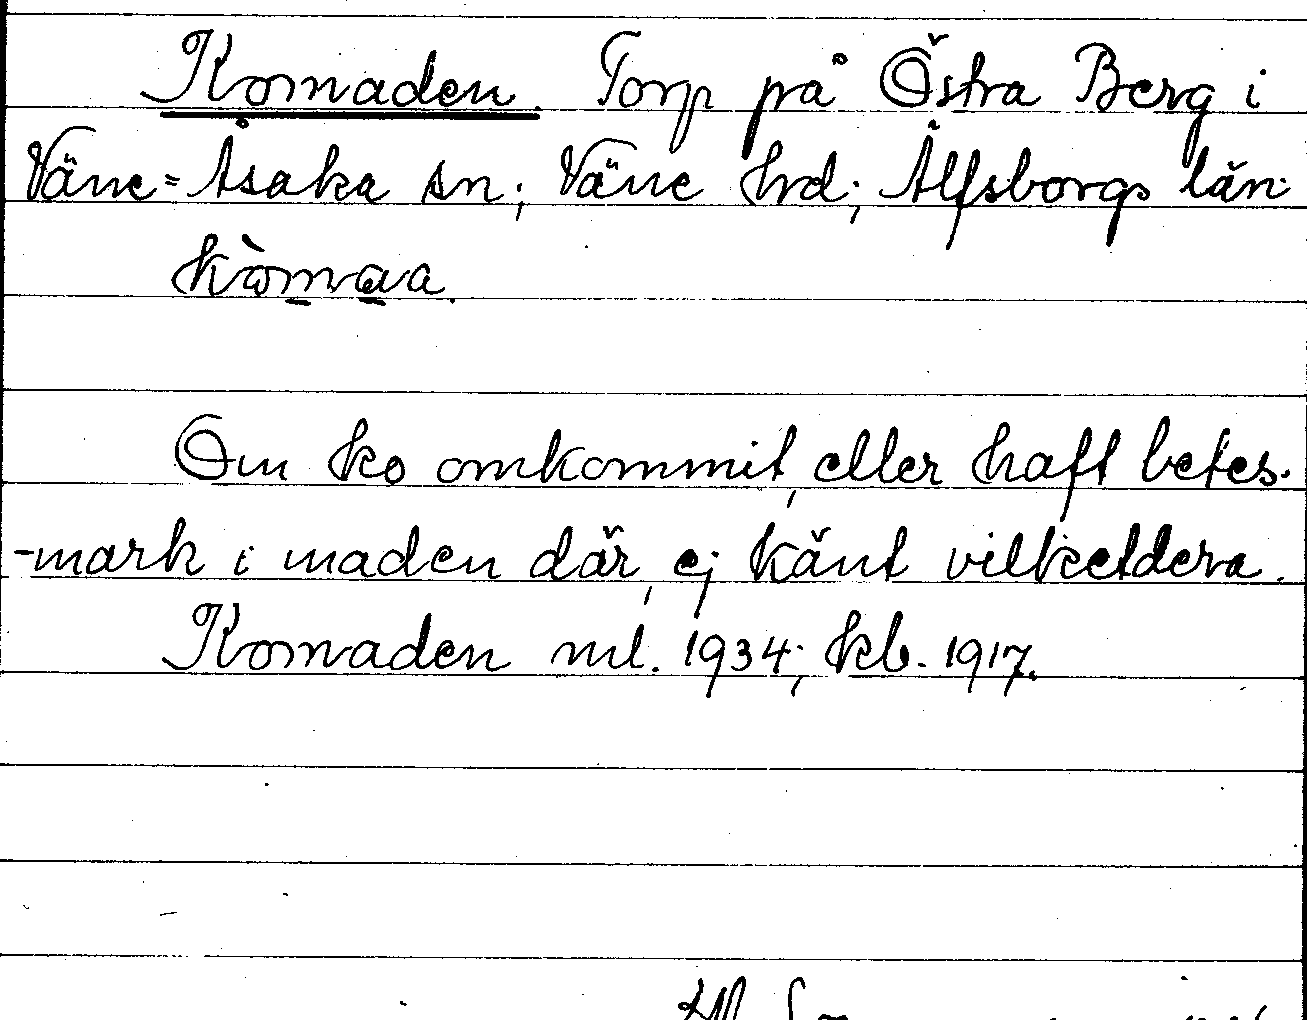 Komaden. Torp på Östra Berg i
Väne=Åsaka sn; Väne hrd; Älfsborgs län
kòmaa.
Om ko omkommit, eller haft betes-
-mark i maden där, ej känt vilketdera.
Komaden ml. 1934; kb. 1917.